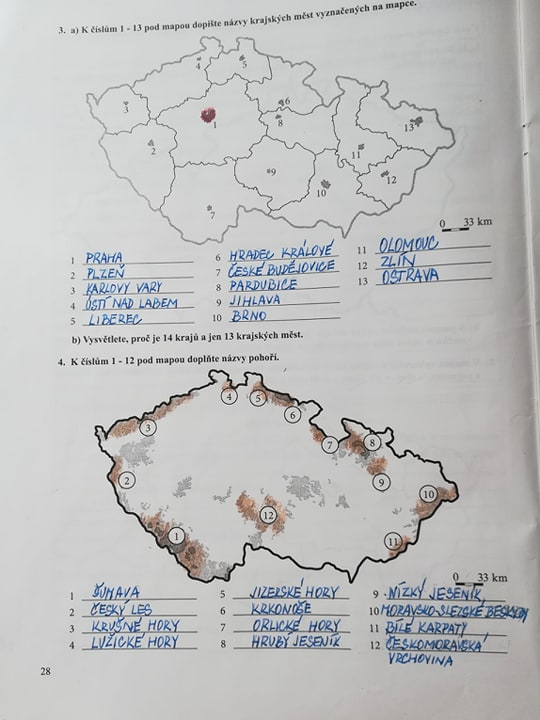 3. a) K číslům 1 - 13 pod mapou dopište názvy krajských měst vyznačených na mapce.
4
5
3
6
1
8
13
2
11
9
12
10
7
0 33 km
1 PRAHA
2 PLZEŇ
3 KARLOVY VARY
4 ÚSTÍ NAD LABEM
5 LIBEREC
6 HRADEC KRÁLOVÉ
7 ČESKÉ BUDĚJOVICE
8 PARDUBICE
9 JIHLAVA
10 BRNO
11 OLOMOUC
12 ZLÍN
13 OSTRAVA
b) Vysvětlete, proč je 14 krajů a jen 13 krajských měst.
4. K číslům 1 - 12 pod mapou doplňte názvy pohoří.
4
5
6
3
7
8
2
9
10
12
1
11
0 33 km
1 ŠUMAVA
2 ČESKÝ LES
3 KRUŠNÉ HORY
4 LUŽICKÉ HORY
5 JIZERSKÉ HORY
6 KRKONOŠE
7 ORLICKÉ HORY
8 HRUBÝ JESENÍK
9 NÍZKÝ JESENÍK
10 MORAVSKO-SLEZSKÉ BESKYDY
11 BÍLÉ KARPATY
12 ČESKOMORAVSKÁ
VRCHOVINA
28